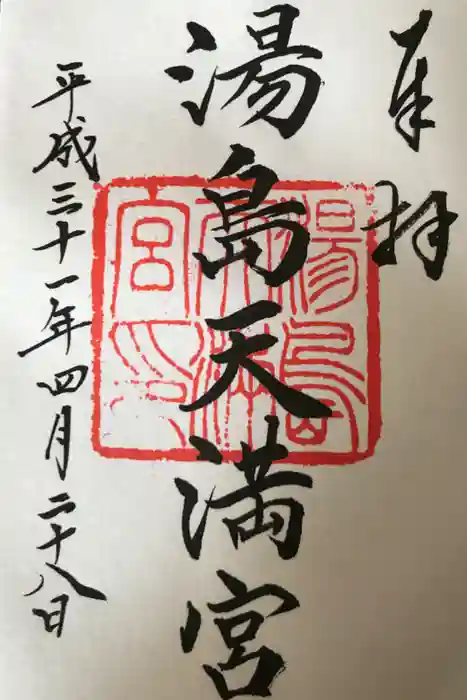 奉拝
湯島天満宮
湯島天満宮印
平成三十一年四月二十八日